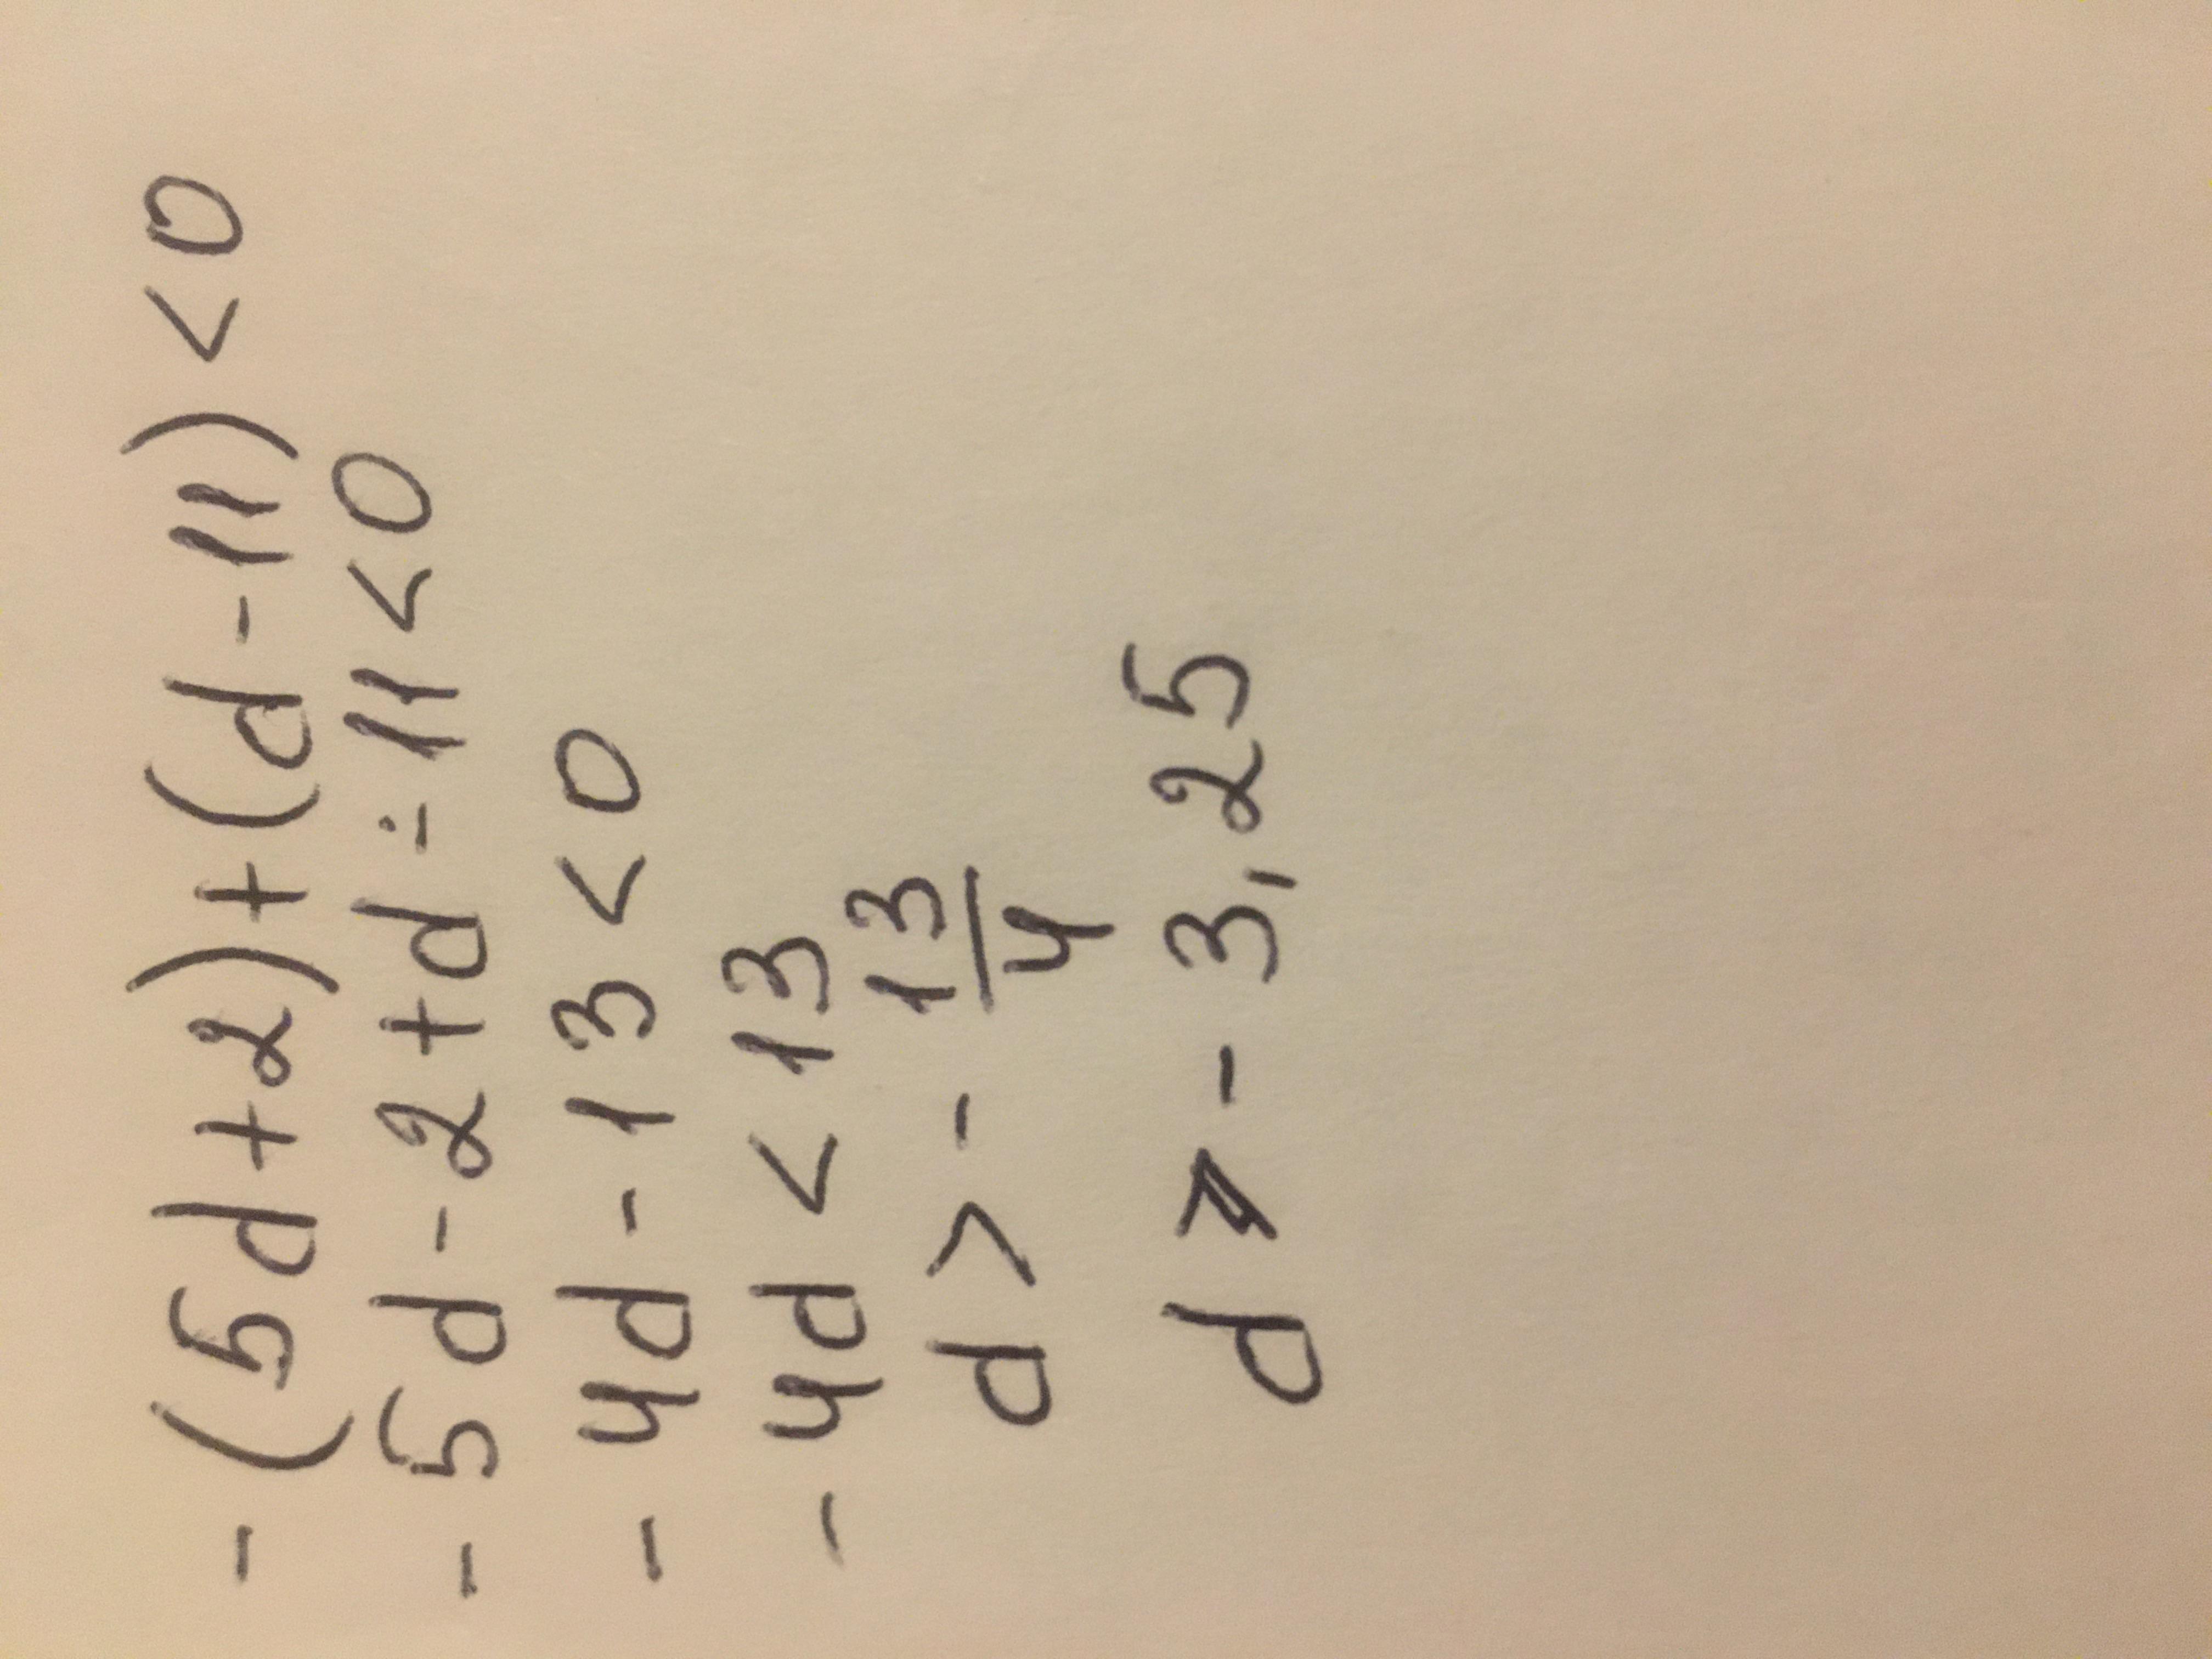 -(5d+2)+(d-11)<0
-5d-2+d-11<0
-4d-13<0
-4d<13
d>-13/4
d>-3,25